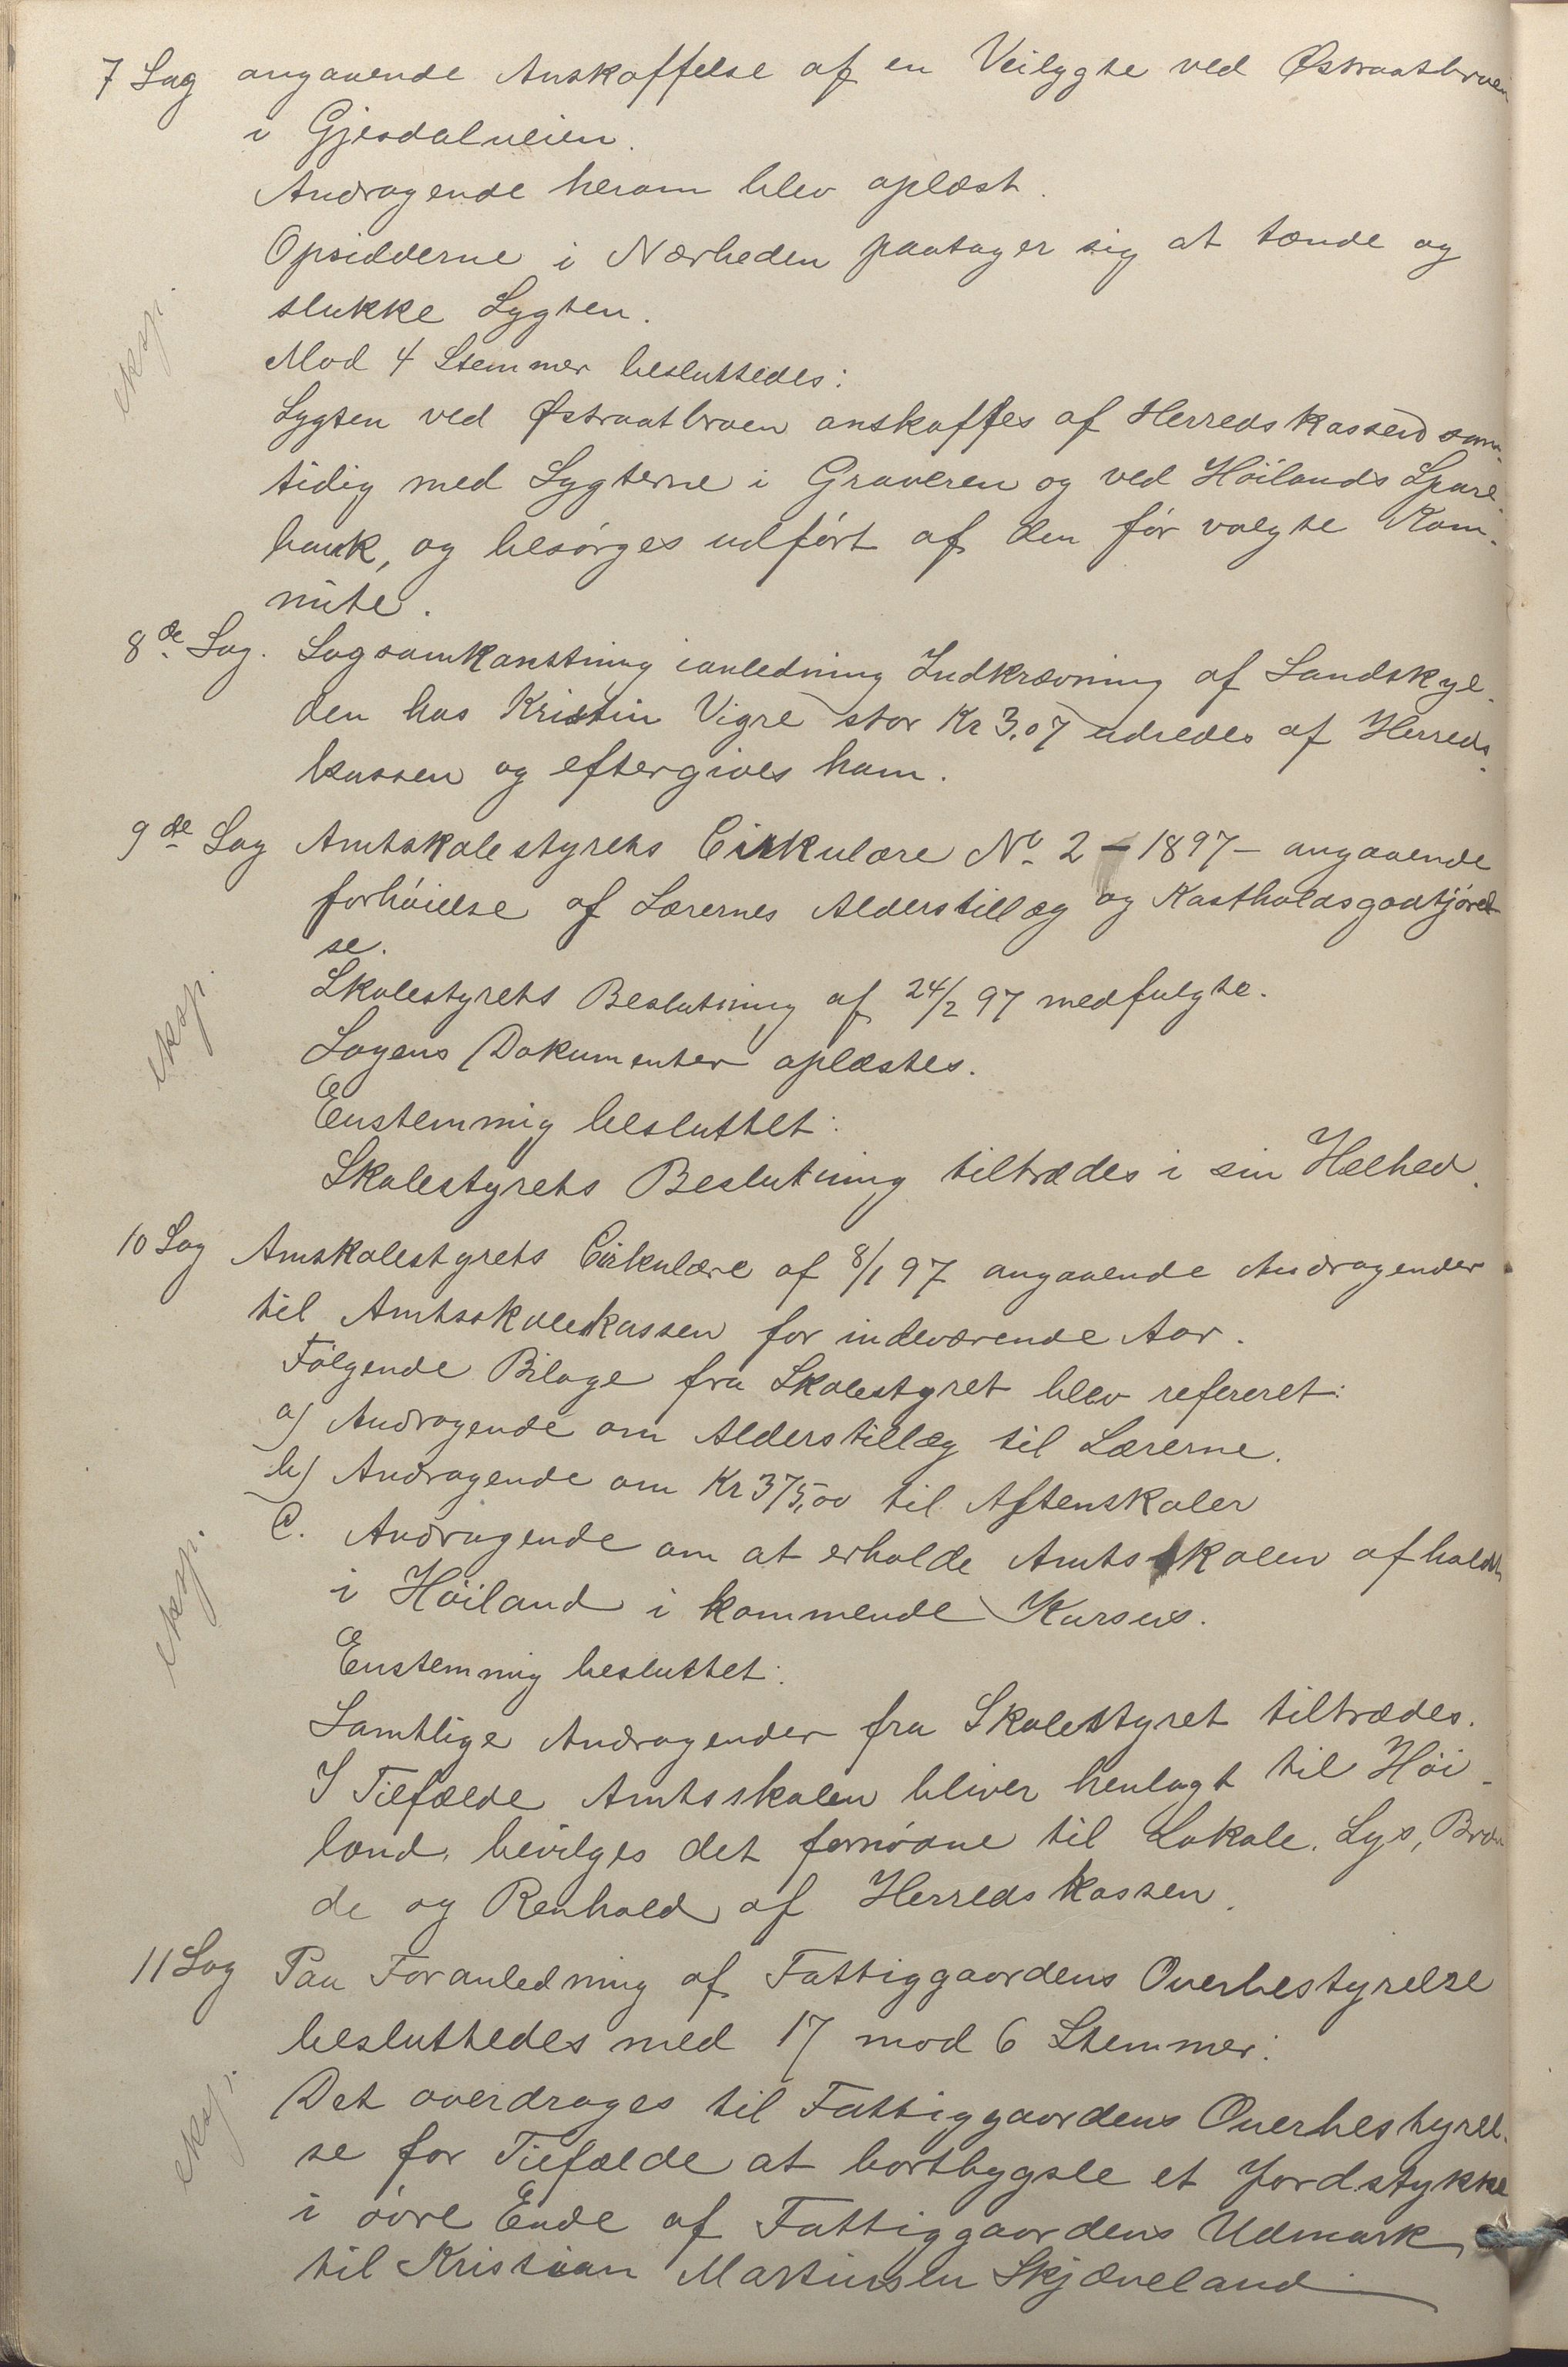 7 Sag angaaende Anskaffelse af en Veilygte ved Østraatbroen
i Gjesdalveien.
Andragende herom blev oplæst.
Opsidderne i Nærheden paatager sig at tænde og
slukke Lygten.
eksp.
Mod 4 Stemmer besluttedes:
Lygten ved Østraatbroen anskaffes af Herredskassen sam-
tidig med Lygterne i Graveren og ved Höilands Spare-
bank, og besörges udfört af den för valgte Kom-
mite.
8de Sag. Sagsomkostning ianledning Indkrævning af Landskyl-
den hos Kristin Vigre stor Kr 3,07 udredes af Herreds-
kassen og eftergives ham.
9de Sag Amtskolestyrets Cirkulære No 2 - 1897 - angaaende
forhöielse af Lærernes Alderstillæg og Kostholdsgodtjörel-
se.
Skolestyrets Beslutning af 24/2 97 medfulgte.
eksp.
Sagens Dokumenter oplæstes.
Enstemmig besluttet:
Skolestyrets Beslutning tiltrædes i sin Helhed.
10 Sag Amskolestyrets Cirkulære af 8/1 97 angaaende Andragender
til Amtsskolekassen for indeværende Aar.
Fölgende Bilage fra Skolestyret blev refereret:
a) Andragende om Alderstillæg til Lærerne.
b) Andragende om Kr 375,00 til Aftenskoler
C. Andragende om at erholde Amtsskolen afholdt
i Höiland i kommende Kursus.
eksp.
Enstemmig besluttet:
Samtlige Andragender fra Skolestyret tiltrædes.
I Tilfælde Amtsskolen bliver henlagt til Höi-
land, bevilges det fornödne til Lokale, Lys, Bræn-
de og Renhold af Herredskassen.
11 Sag Paa Foranledning af Fattiggaardens Overbestyrelse
besluttedes med 17 mod 6 Stemmer:
eksp.
Det overdrages til Fattiggaardens Overbestyrel-
se for Tilfælde at bortbygsle et Jordstykke
i övre Ende af Fattiggaardens Udmark
til Kristian Martinsen Skjæveland